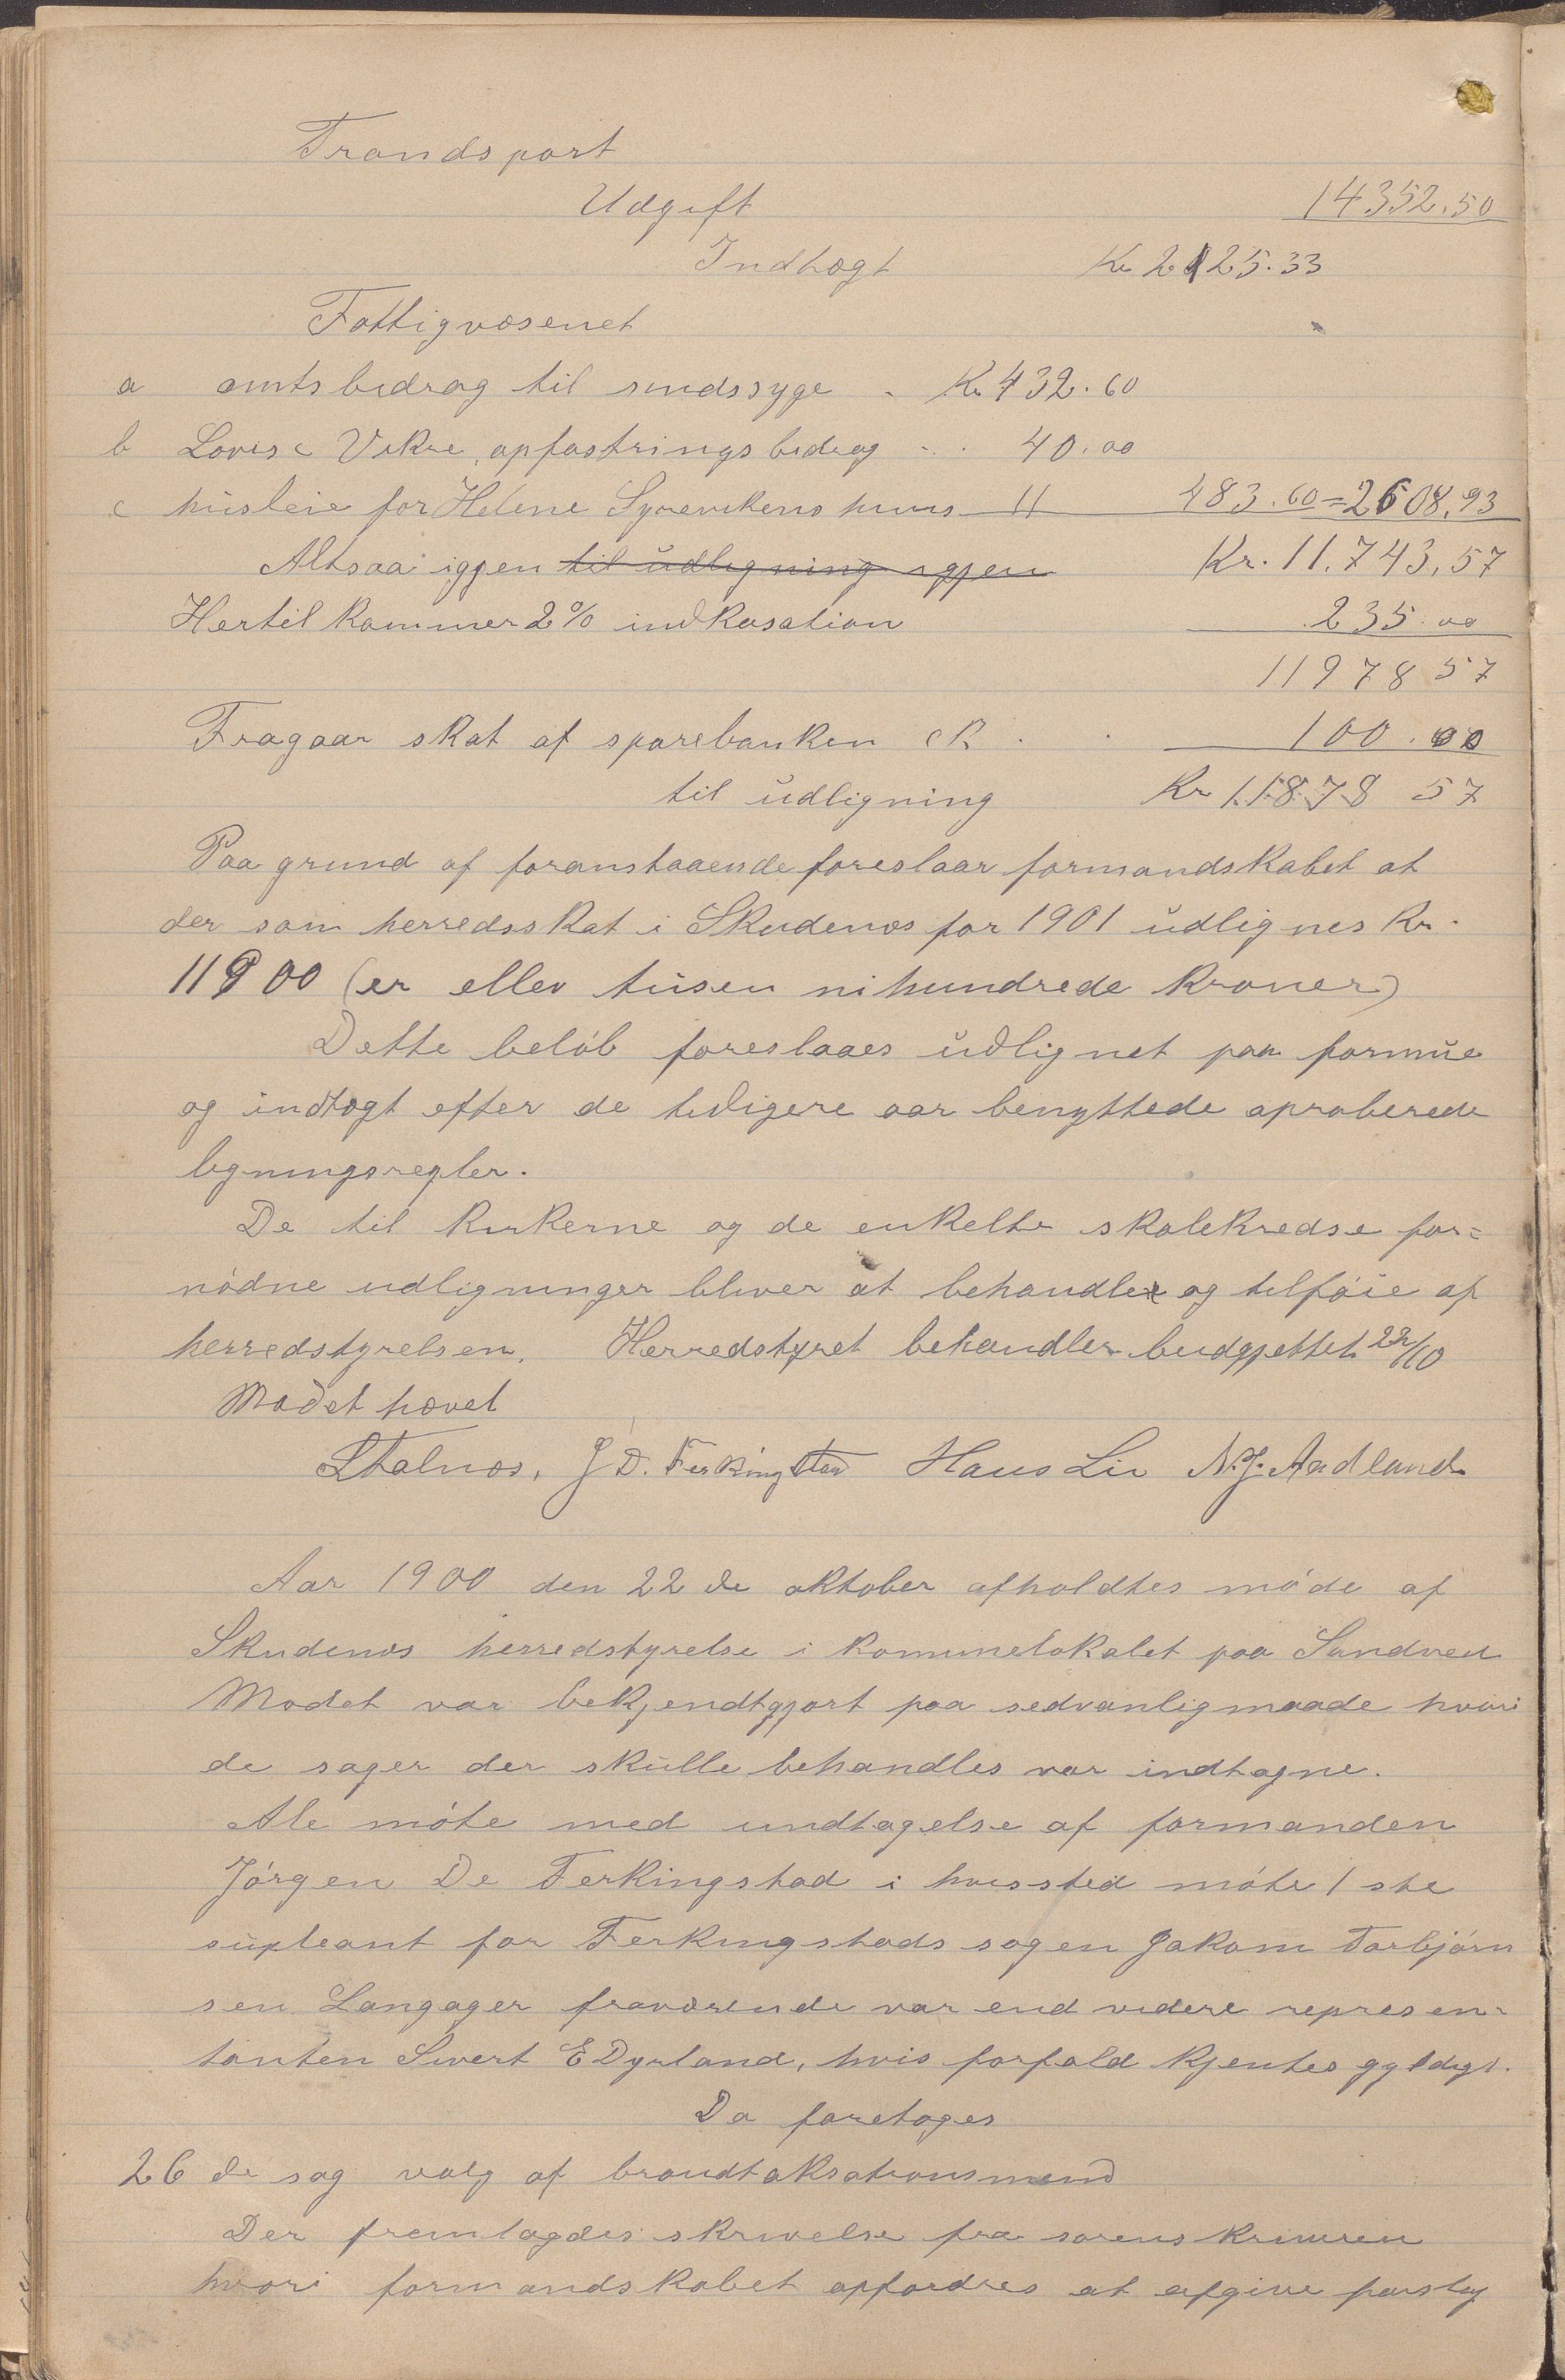 Trandsport
Udgift 14352.50
Indtægt Kr 2125.33
Fattigvæsenet
a amtsbidrag til sindssyge - Kr 432.60
b Lovise Vikre, opfostringsbidrag - - 40.00
c husleie for Helene Syrevikens huus 11 483.60=2608,93
Altsaa igjen til udligning igjen Kr. 11.743,57
Hertil kommer 2% indkasation 235.00
11978 57
Fragaar skat af sparebanken kr. . 100.00
til udligning Kr 11878 57
Paa grund af foranstaaende foreslaar formandskabet at
der som herredsskat i Skudenæs for 1901 udlignes Kr.
11900 (er ellev tusen nihundrede kroner)
Dette beløb foreslaaes udlignet paa formue
og indtægt efter de tidligere aar benyttede aproberede
ligningsregler.
De til kirkerne og de enkelte skolekredse for=
nødne udligninger bliver at behandle og tilføie af
herredstyrelsen. Herredstyret behandler budgjettet 22/10
Mødet hævet
LThalnæs, J D. Ferkingstad Hans Lie N.J. Aadland
Aar 1900 den 22de oktober afholdtes møde af
Skudenæs herredstyrelse i kommunelokalet paa Sandved
Mødet var bekjendtgjort paa sedvanlig maade hvori
de sager der skulle behandles var indtagne.
Ale møte med undtagelse af formanden
Jørgen De Ferkingstad i hvis sted møte 1ste
supleant for Ferkingstads sogen Jakom Torbjørn
sen Langager fraværende var end videre represen=
tanten Sivert E Dyrland, hvis forfald kjentes gyldigt.
Da foretoges
26de sag valg af brandtaksationsmend
Der fremlagdes skrivelse fra sorenskriveren
hvori formandskabet opfordres at afgive forslag